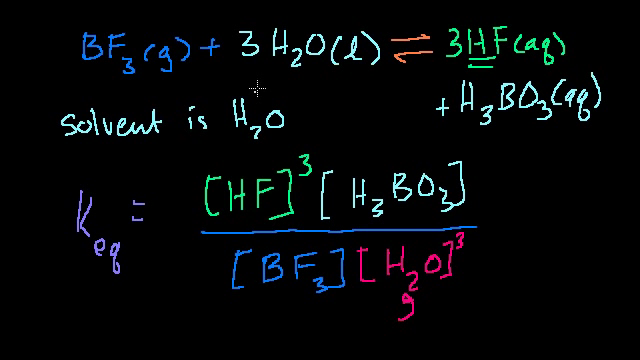 BF₃(g) + 3H₂O(l) ⇌ 3HF(aq)
+ H₃BO₃(aq)
solvent is H₂O
K_eq = [HF]³[H₃BO₃] / [BF₃][H₂O]³
g